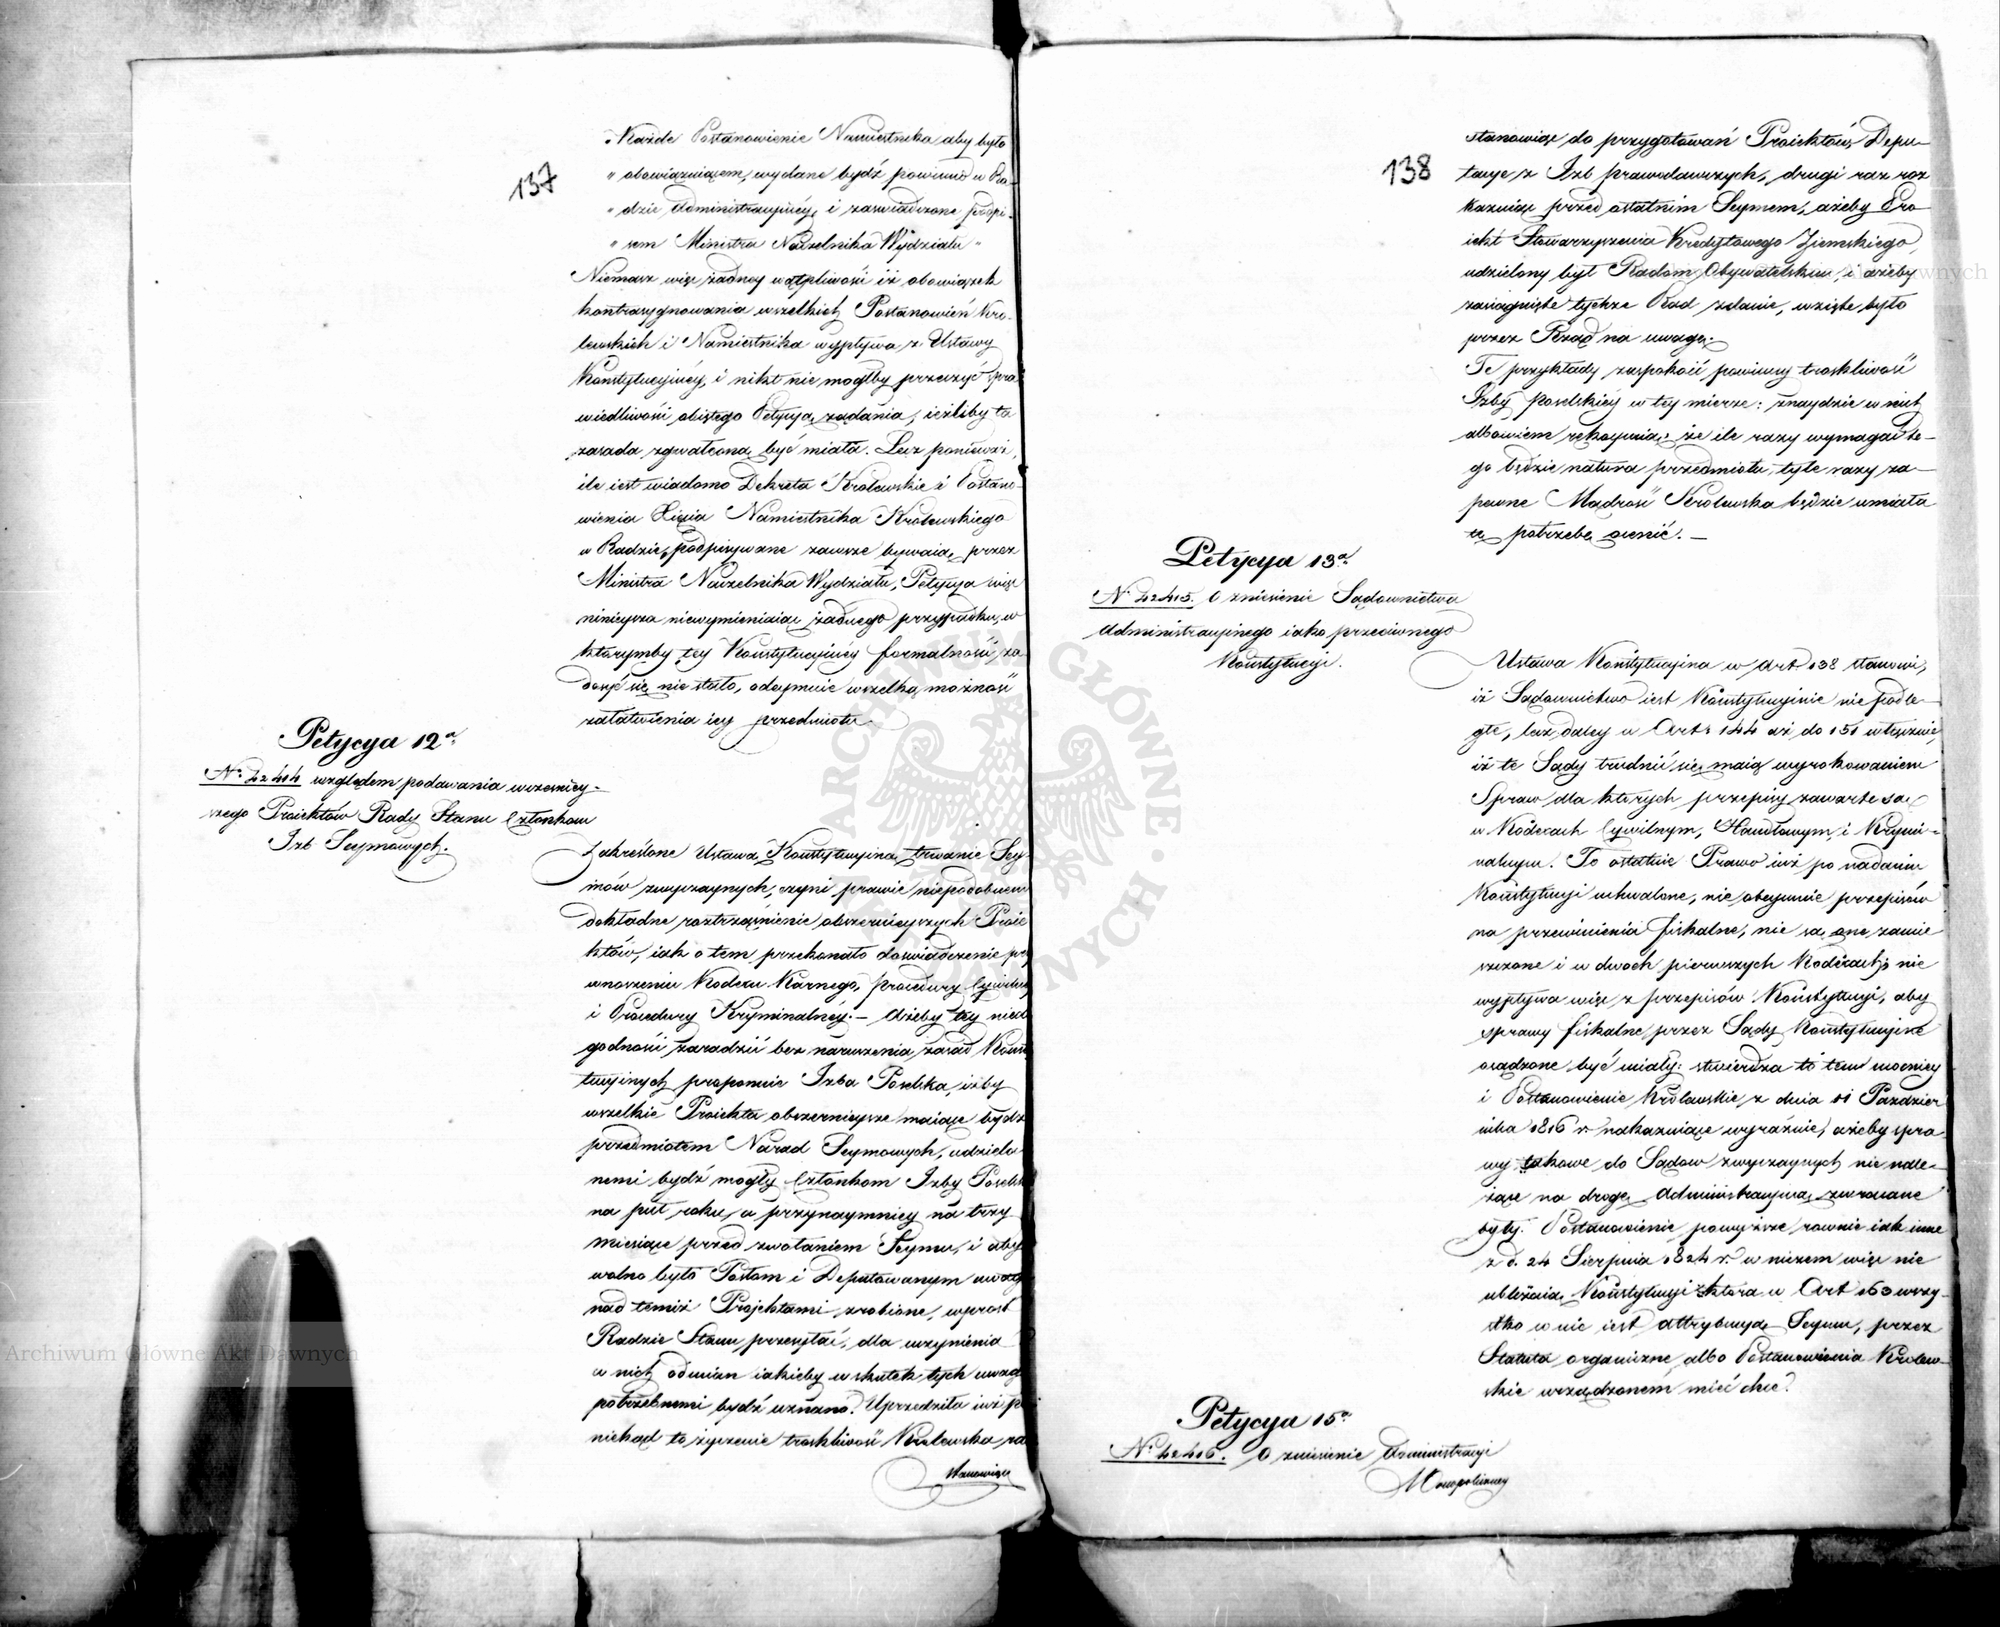 137
„Każde Postanowienie Namiestnika aby było
„ obowiązuiącem, wydane bydź powinno w Ra-
„ dzie Administracyiney, i zaświadczone podpi-
„ sem Ministra Naczelnika Wydziału „
Niemasz więc żadney wątpliwości iż obowiązek
kontrasygnowania wszelkich Postanowień Kró-
lewskich i Namiestnika wypływa z Ustawy
Konstytucyiney, i nikt nie mógłby przeczyć spra
wiedliwości obiętego Petycyą żądania, ieżliby ta
zasada zgwałconą być miała. Lecz ponieważ,
ile iest wiadomo Dekreta Królewskie i Postano-
wienia Xięcia Namiestnika Królewskiego
w Radzie, podpisywane zawsze bywaią, przez
Ministra Naczelnika Wydziału, Petycya więc
ninieysza niewymieniaiąc żadnego przypadku, w
którymby tey Konstytucyiney formalności za
dosyć się nie stało, odeymuie wszelką możność
załatwienia iey przedmiotu.
Petycya 12a.
No. 42414 względem podawania wczesniey-
szego Proiektów Rady Stanu Członkom
Izb Seymowych.
Zakreślone Ustawą Konstytucyiną, trwanie Sey-
mów zwyczaynych, czyni prawie niepodobnem
dokładne roztrząśnienie obszernieyszych Proie
któw, iak o tem przekonało doświadczenie przy
wnoszeniu Kodexu Karnego, Procedury Cywilney
i Procedury Kryminalney. – Ażeby tey niedo
godności zaradzić bez naruszenia zasad Konst
tucyinych proponuie Izba Poselska, iżby
wszelkie Proiekta obszernieysze maiące bydź
przedmiotem Narad Seymowych, udzielo
nemi bydź mogły Członkom Izby Poselsk
na pół roku, a przynaymniey na trzy
miesiące przed zwołaniem Seymu, i aby
wolno było Posłom i Deputowanym uwagi
nad temiż Projektami zrobione, wprost
Radzie Stanu przesyłać, dla uczynienia
w nich odmian iakieby w skutek tych uwag
potrzebnemi bydź uznano. Uprzedziła iuż po
niekąd to życzenie troskliwość Królewska ra
stanowiąc
138
stanowiąc do przygotowań Proiektów, Depu-
tacye z Izb prawodawczych, drugi raz roz
kazuiąc przed ostatnim Seymem, ażeby Pro
iekt Stowarzyszenia Kredytowego Ziemskiego,
udzielony był Radom Obywatelskim, i ażeby
zasiągnięte tychże Rad zdanie, wzięte było
przez Rząd na uwagę.
Te przykłady zaspokoić powinny troskliwość
Izby Poselskiey w tey mierze: znaydzie w nich
albowiem rękoymią, że ile razy wymagać te-
go będzie natura przedmiotu, tyle razy za-
pewne Mądrość Królewska będzie umiała
tę potrzebę ocenić. –
Petycya 13a.
No. 42415. O zniesienie Sądownictwa
Administracyinego iako przeciwnego
Konstytucyi.
Ustawa Konstytucyina w Art 138 stanowi,
iż Sądownictwo iest Konstytucyinie nie podle-
głe, lecz daley w Art: 144 aż do 151 wteyżnie,
iż te Sądy trudnić się maią wyrokowaniem
Spraw dla których przepisy zawarte są
w Kodexach Cywilnym, Handlowym, i Krymi-
nalnym. To ostatnie Prawo iuż po nadaniu
Konstytucyi uchwalone, nie obeymuie przepisów
na przewinienia fiskalne, nie są one zamie
szczone i w dwóch pierwszych Kodexach; nie
wypływa więc z przepisów Konstytucyi, aby
sprawy fiskalne, przez Sądy Konstytucyine
osądzone być miały: stwierdza to tem mocniey
i Postanowienie Królewskie z dnia 11 Paździer
nika 1816 r. nakazuiące wyraźnie, ażeby spra
wy takowe do Sądów zwyczaynych nie nale-
żące na drogę Administracyiną zwracane
były. Postanowienie powyższe równie iak inne
z d. 24 Sierpnia 1824 r. w niczem więc nie
ubliżaią Konstytucyi która w Art 163 wszy-
stko co nie iest attrybucyą Seymu, przez
Statuta organiczne albo Postanowienia Królew-
skie urządzonem mieć chce.
Petycya 15a.
No. 42416. O zniesienie Administracyi
Monopoliczney
ARCHIWUM GŁÓWNE AKT DAWNYCH
Archiwum Główne Akt Dawnych